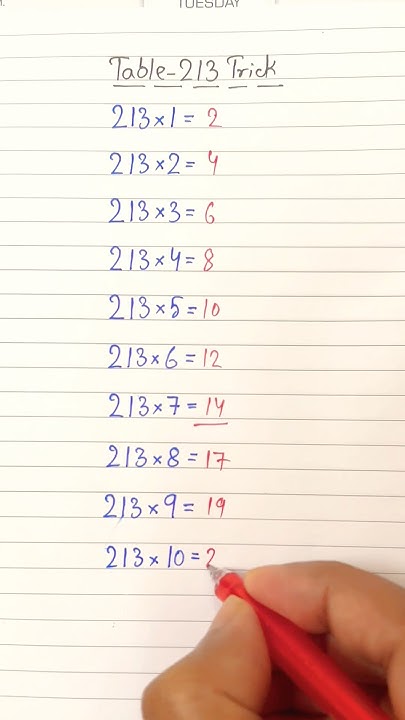 TUESDAY
Table-213 Trick
213×1= 2
213×2= 4
213×3= 6
213×4= 8
213×5=10
213×6=12
213×7=14
213×8=17
213×9= 19
213×10=2